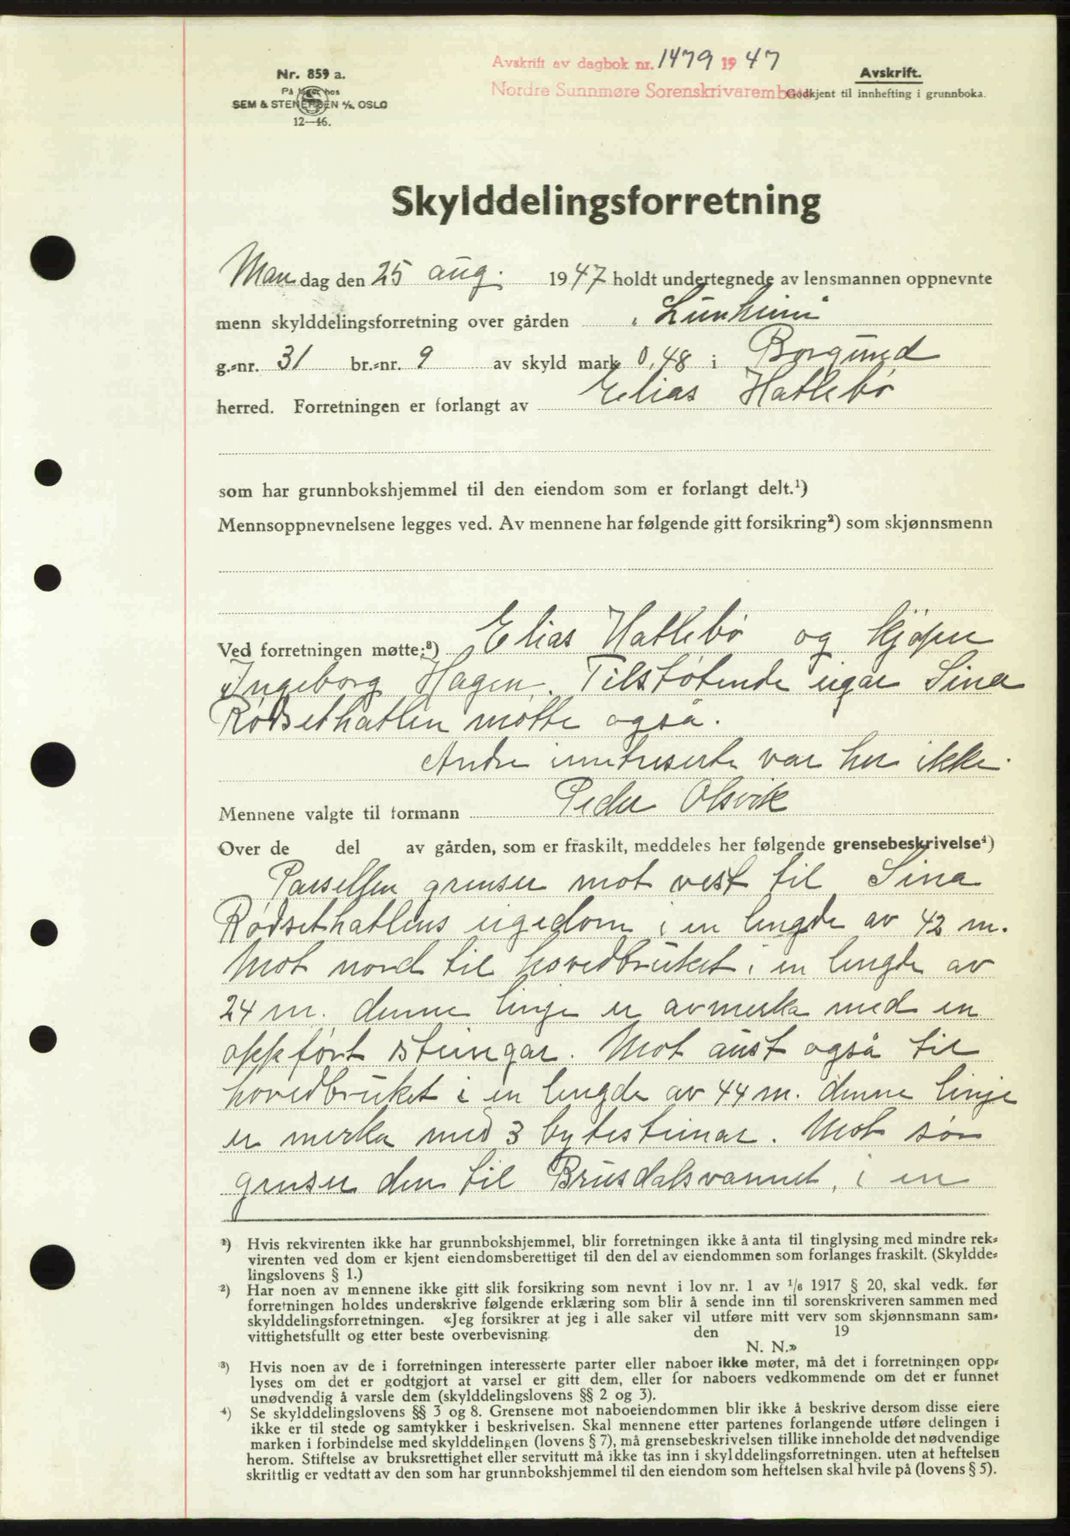 Nr. 859 a.
På lager hos
SEM & STENERSEN A/S, OSLO
12—46.
Avskrift av dagbok nr. 1479 19 47
Nordre Sunnmøre Sorenskriverembete
Avskrift.
Godkjent til innhefting i grunnboka.
Skylddelingsforretning
Man dag den 25 aug. 1947 holdt undertegnede av lensmannen oppnevnte
menn skylddelingsforretning over gården Lunheim
g.-nr. 31 br.-nr. 9 av skyld mark 0,48 i Borgund
herred. Forretningen er forlangt av Elias Hatlebø
som har grunnbokshjemmel til den eiendom som er forlangt delt.¹)
Mennsoppnevnelsene legges ved. Av mennene har følgende gitt forsikring²) som skjønnsmenn
Ved forretningen møtte:³) Elias Hatlebø og kjøper
Ingeborg Hagen. Tilstøtende eigar Sina
Rødsethatlen møtte også.
Andre interesserte var her ikke.
Mennene valgte til formann Peder Olsvik
Over de del av gården, som er fraskilt, meddeles her følgende grensebeskrivelse⁴)
Parsellen grenser mot vest til Sina
Rødsethatlens eigedom i en lengde av 42 m.
Mot nord til hovedbruket i en lengde av
24 m. denne linje er avmerka med en
oppført steingar. Mot aust også til
hovedbruket i en lengde av 44 m. denne linje
er merka med 3 bytesteinar. Mot sør
grenser den til Brusdalsvannet, i en
¹) Hvis rekvirenten ikke har grunnbokshjemmel, blir forretningen ikke å anta til tinglysing med mindre rek-
virenten ved dom er kjent eiendomsberettiget til den del av eiendommen som forlanges fraskilt. (Skyldde-
lingslovens § 1.)
²) Har noen av mennene ikke gitt slik forsikring som nevnt i lov nr. 1 av 1/6 1917 § 20, skal vedk. før
forretningen holdes underskrive følgende erklæring som blir å sende inn til sorenskriveren sammen med
skylddelingsforretningen. «Jeg forsikrer at jeg i alle saker vil utføre mitt verv som skjønnsmann sam-
vittighetsfullt og etter beste overbevisning den 19
N. N.»
³) Hvis noen av de i forretningen interesserte parter eller naboer ikke møter, må det i forretningen opp-
lyses om det er godtgjort at varsel er gitt dem, eller for naboers vedkommende om det er funnet
unødvendig å varsle dem (skylddelingslovens §§ 2 og 3).
⁴) Se skylddelingslovens §§ 3 og 8. Grensene mot naboeiendommen blir ikke å beskrive dersom disse eiere
ikke er til stede og samtykker i beskrivelsen. Skal mennene etter partenes forlangende utføre delingen i
marken i forbindelse med skylddelingen (lovens § 7), må grensebeskrivelsen tillike inneholde det nødvendige
herom. Stiftelse av bruksrettighet eller servitutt må ikke tas inn i skylddelingsforretningen. uten at heftelsen
skriftlig er vedtatt av den som har grunnbokshjemmel til den eiendom som heftelsen skal hvile på (lovens § 5).